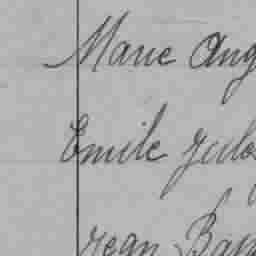 Marie Ang
Emile Jules
Jean Bap